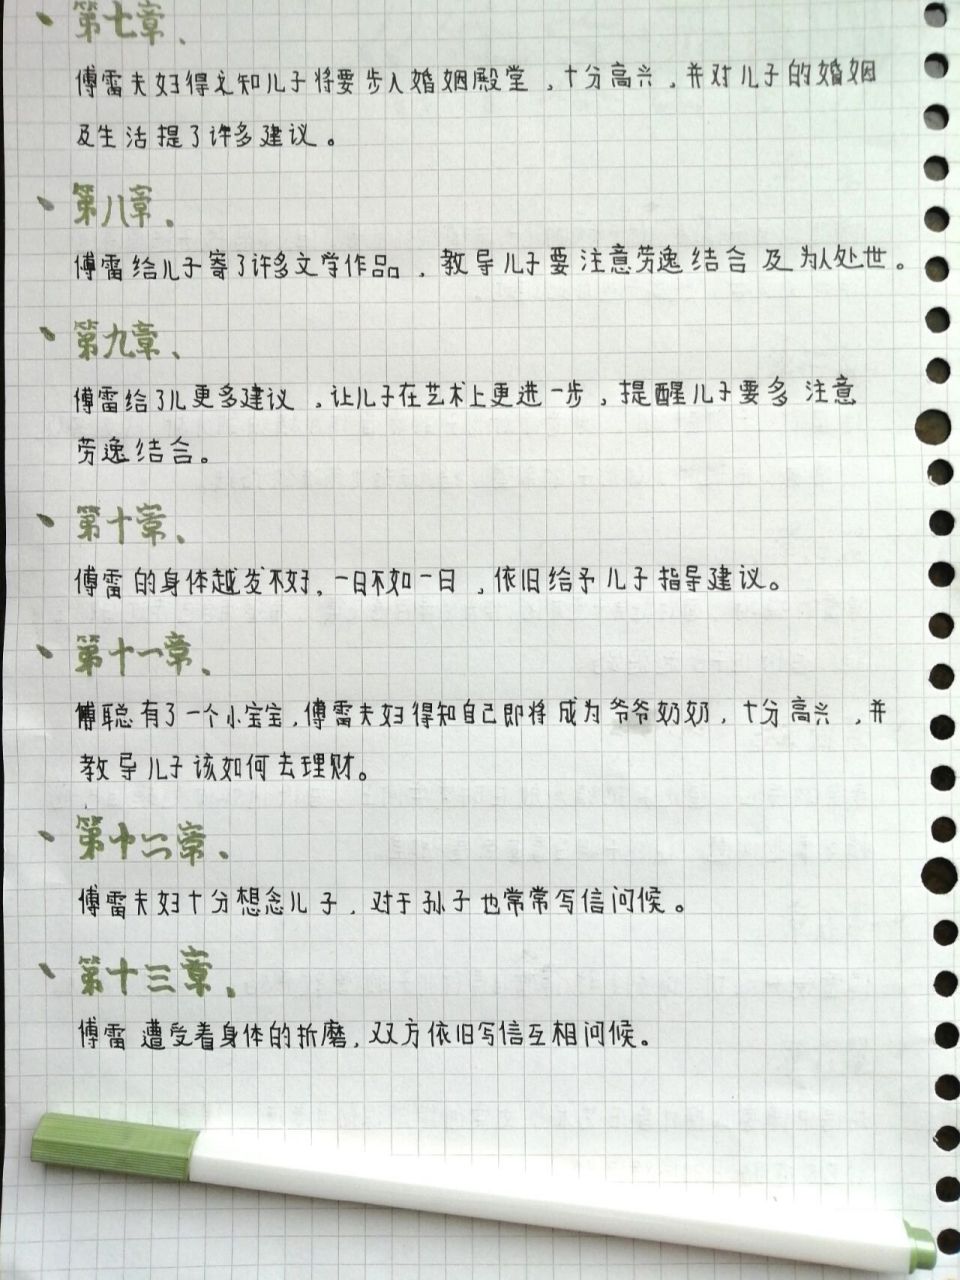 第七章、
傅雷夫妇得之知儿子将要步入婚姻殿堂，十分高兴，并对儿子的婚姻
及生活提了许多建议。
第八章、
傅雷给儿子寄了许多文学作品，教导儿子要注意劳逸结合及为人处世。
第九章、
傅雷给了儿更多建议，让儿子在艺术上更进一步，提醒儿子要多注意
劳逸结合。
第十章、
傅雷的身体越发不好，一日不如一日，依旧给予儿子指导建议。
第十一章、
傅聪有了一个小宝宝，傅雷夫妇得知自己即将成为爷爷奶奶，十分高兴，并
教导儿子该如何去理财。
第十二章、
傅雷夫妇十分想念儿子，对于孙子也常常写信问候。
第十三章、
傅雷遭受着身体的折磨，双方依旧写信互相问候。